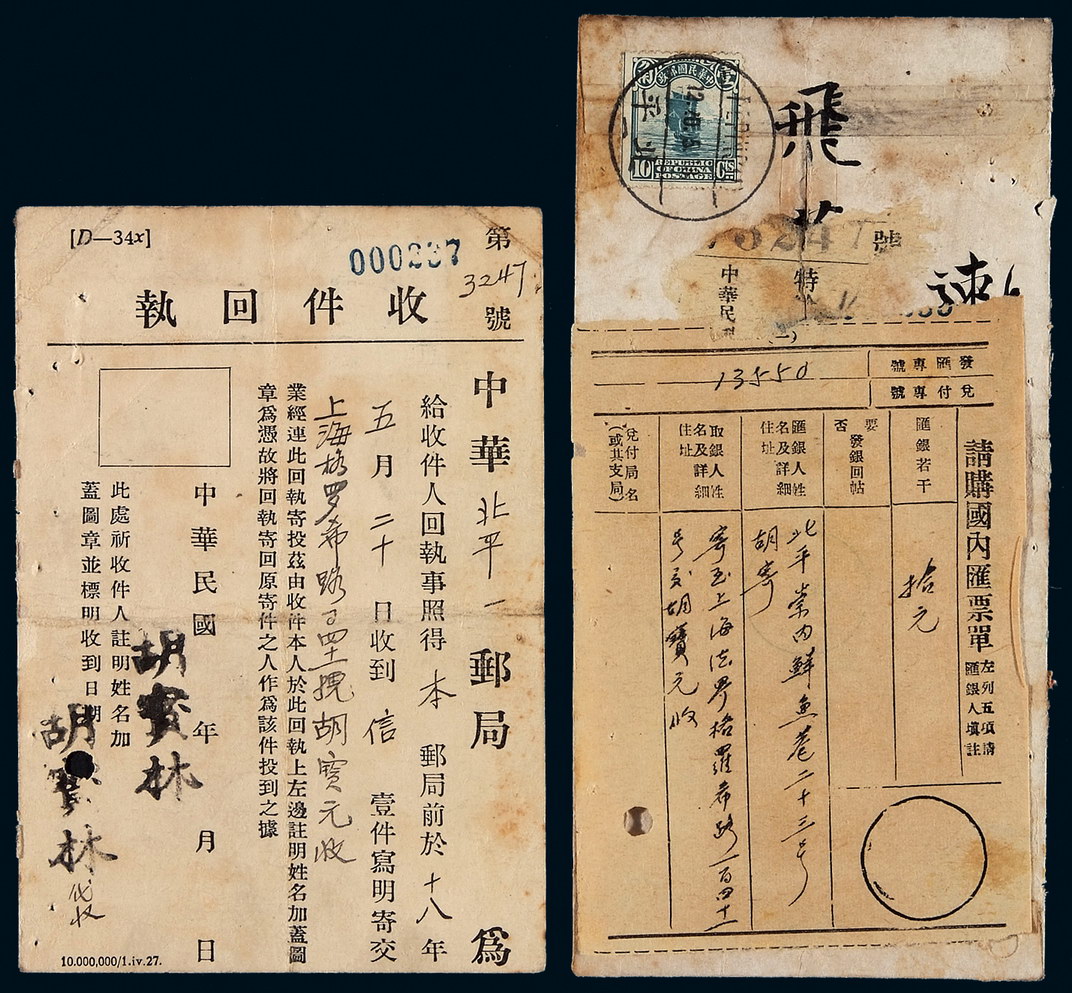 [D—34x]
000237
第
3247
號
收件回執
中華北平一郵局為
給收件人回執事照得本郵局前於十八年
五月二十日收到信壹件寫明寄交
上海格罗希路百四十一號胡寳元收
業經連此回執寄投茲由收件本人於此回執上左邊註明姓名加蓋圖
章爲憑故將回執寄回原寄件之人作爲該件投到之據
中華民國年月日
此處祈收件人註明姓名加
蓋圖章並標明收到日期
胡寳林
胡寳林
代收
10.000,000/1.iv.27.
中華民國郵政
壹
10
CTS
REPUBLIC
OF CHINA
POSTAGE
北平
飛
號
特
中華民
(一)
請購國內匯票單
左列五項請
匯銀人填註
發匯專號
兌付專號
13550
匯銀若干
拾元
要否發銀回帖
匯銀人姓名及詳細住址
北平崇内鮮魚巷二十三号
胡寄
取銀人姓名及詳細住址
寄至上海法界格羅希路一百四十一
号交胡寶元收
兌付局名
(或其支局)